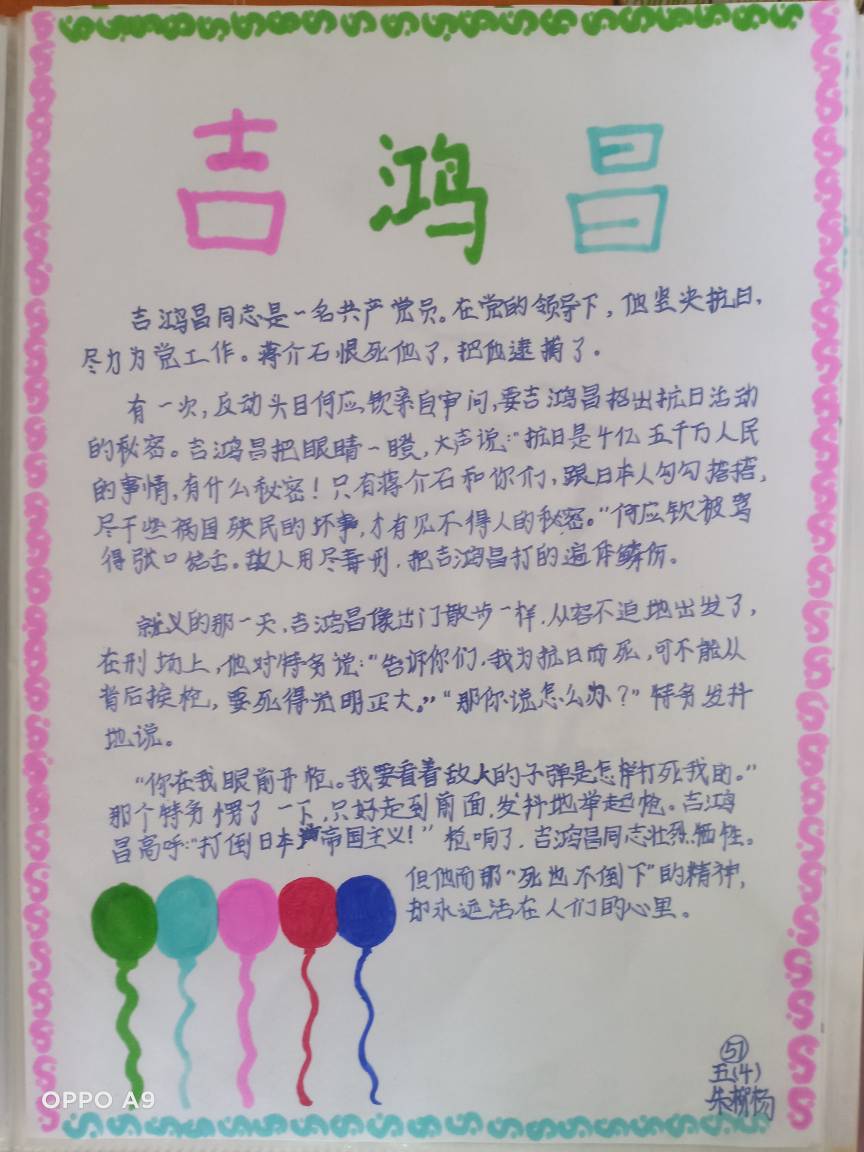 吉鸿昌
吉鸿昌同志是一名共产党员。在党的领导下，他坚决抗日，
尽力为党工作。蒋介石恨死他了，把他逮捕了。
有一次，反动头目何应钦亲自审问，要吉鸿昌招出抗日活动
的秘密。吉鸿昌把眼睛一瞪，大声说："抗日是4亿五千万人民
的事情，有什么秘密！只有蒋介石和你们，跟日本人勾勾搭搭，
尽干些祸国殃民的坏事，才有见不得人的秘密。"何应钦被骂
得张口结舌。敌人用尽毒刑，把吉鸿昌打的遍体鳞伤。
就义的那一天，吉鸿昌像出门散步一样，从容不迫地出发了，
在刑场上，他对特务说："告诉你们，我为抗日而死，可不能从
背后挨枪，要死得光明正大。""那你说怎么办？"特务发抖
地说。
"你在我眼前开枪。我要看着敌人的子弹是怎样打死我的。"
那个特务愣了一下，只好走到前面，发抖地举起枪。吉鸿
昌高呼："打倒日本帝国主义！"枪响了，吉鸿昌同志壮烈牺牲。
但他而那"死也不倒下"的精神，
却永远活在人们的心里。
51
五(4)
朱柳杨
OPPO A9